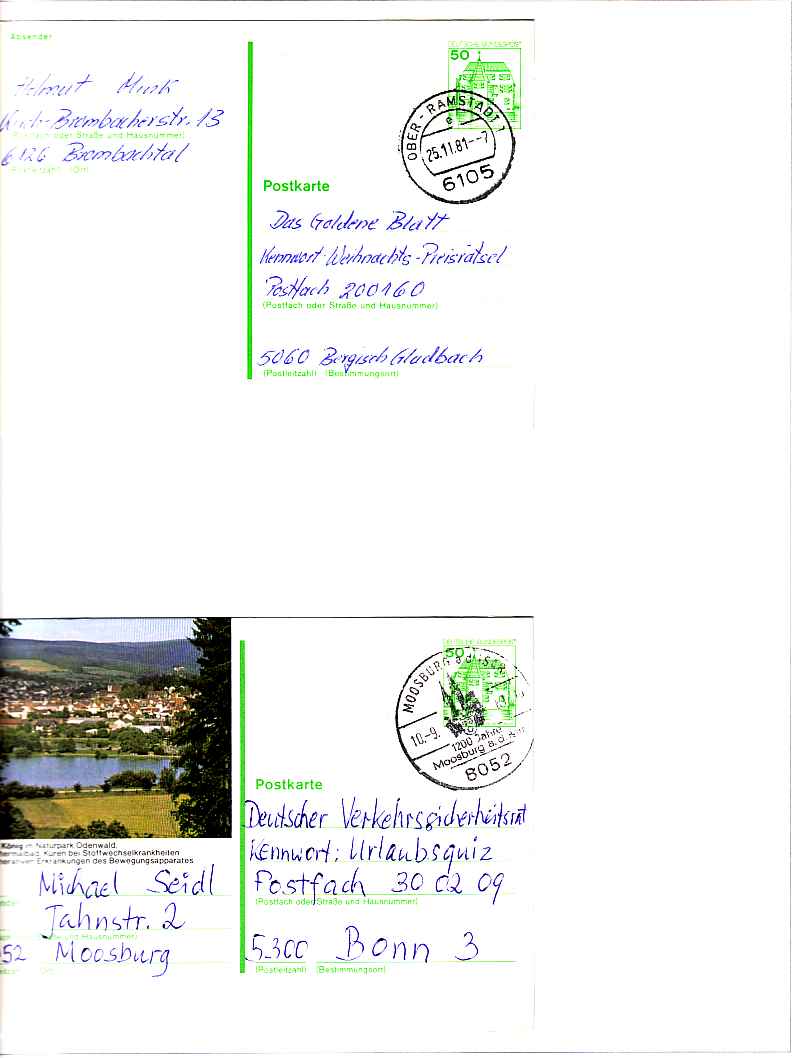 Absender
Helmut Munk
Erich-Brombacherstr. 13
(Postfach oder Straße und Hausnummer)
6126 Brombachtal
(Postleitzahl) (Ort)
50
OBER-RAMSTADT 1
e
25.11.81--7
6105
Postkarte
Das Goldene Blatt
Kennwort-Weihnachts-Preisrätsel
Postfach 200160
(Postfach oder Straße und Hausnummer)
5060 Bergisch Gladbach
(Postleitzahl) (Bestimmungsort)
50
MOOSBURG a d ISAR
10.-9.
1200 Jahre
Moosburg a.d.
8052
Postkarte
König im Naturpark Odenwald,
Kuren bei Stoffwechselkrankheiten
Erkrankungen des Bewegungsapparates
Michael Seidl
Jahnstr. 2
und Hausnummer)
52 Moosburg
Deutscher Verkehrssicherheitsrat
Kennwort: Urlaubsquiz
Postfach 30 02 09
(Postfach oder Straße und Hausnummer)
5300 Bonn 3
(Postleitzahl) (Bestimmungsort)